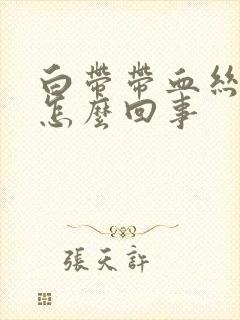 白帶帶血絲
怎麼回事
張天許